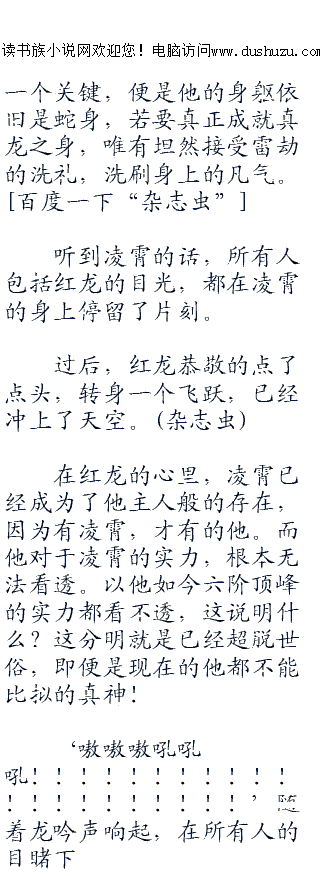 读书族小说网欢迎您！电脑访问www.dushuzu.com
一个关键，便是他的身躯依
旧是蛇身，若要真正成就真
龙之身，唯有坦然接受雷劫
的洗礼，洗刷身上的凡气。
[百度一下“杂志虫”]
听到凌霄的话，所有人
包括红龙的目光，都在凌霄
的身上停留了片刻。
过后，红龙恭敬的点了
点头，转身一个飞跃，已经
冲上了天空。(杂志虫)
在红龙的心里，凌霄已
经成为了他主人般的存在，
因为有凌霄，才有的他。而
他对于凌霄的实力，根本无
法看透。以他如今六阶顶峰
的实力都看不透，这说明什
么？这分明就是已经超脱世
俗，即便是现在的他都不能
比拟的真神！
‘嗷嗷嗷吼吼
吼！！！！！！！！！！！
！！！！！！！！！’随
着龙吟声响起，在所有人的
目睹下